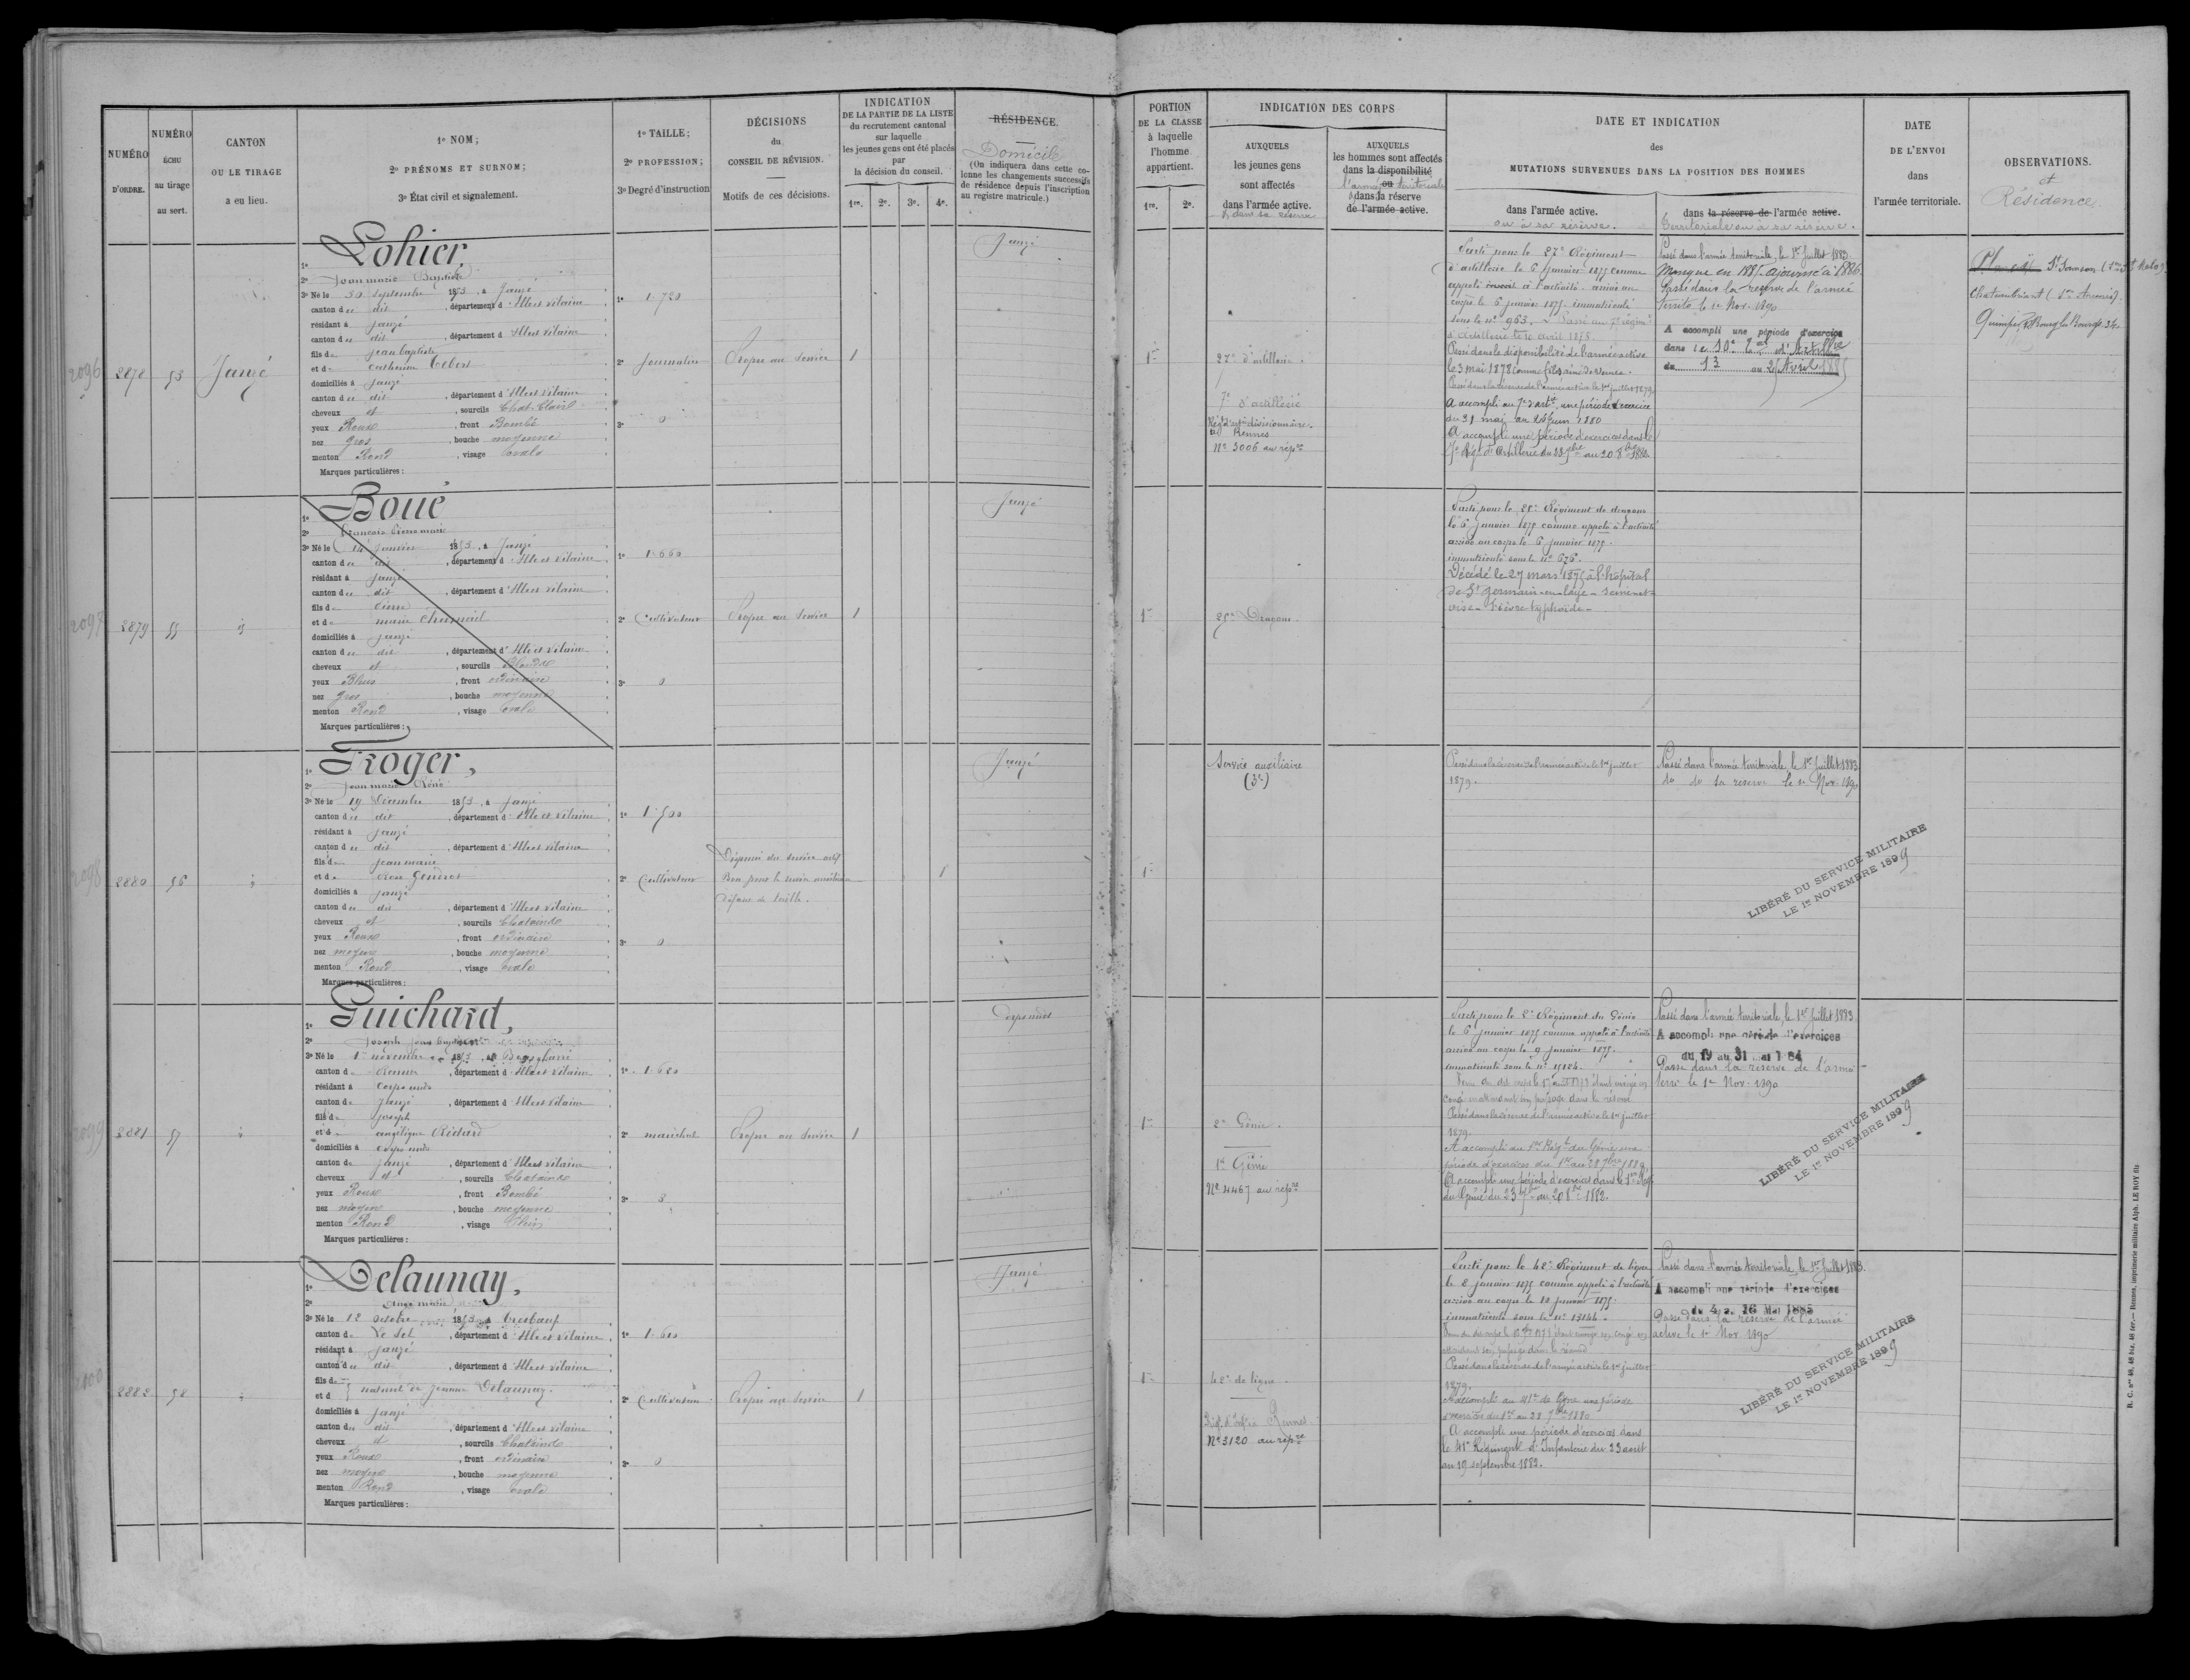 NUMÉRO
D'ORDRE.
NUMÉRO
ÉCHU
au tirage
au sort.
CANTON
OU LE TIRAGE
a eu lieu.
1º NOM;
2º PRÉNOMS ET SURNOM;
3º État civil et signalement.
1º TAILLE;
2º PROFESSION;
3º Degré d'instruction
DÉCISIONS
du
CONSEIL DE RÉVISION.
Motifs de ces décisions.
INDICATION
DE LA PARTIE DE LA LISTE
du recrutement cantonal
sur laquelle
les jeunes gens ont été placés
par
la décision du conseil.
1re. 2e. 3e. 4e.
RÉSIDENCE.
Domicile
(On indiquera dans cette co-
lonne les changements successifs
de résidence depuis l'inscription
au registre matricule.)
PORTION
DE LA CLASSE
à laquelle
l'homme
appartient.
1re. 2e.
INDICATION DES CORPS
AUXQUELS
les jeunes gens
sont affectés
dans l'armée active.
& dans sa réserve
AUXQUELS
les hommes sont affectés
dans la disponibilité
ou
l'armée territoriale
dans la réserve
de l'armée active.
DATE ET INDICATION
des
MUTATIONS SURVENUES DANS LA POSITION DES HOMMES
dans l'armée active.
ou à sa réserve.
dans la réserve de l'armée active.
Territoriale ou à sa réserve.
DATE
DE L'ENVOI
dans
l'armée territoriale.
OBSERVATIONS.
et
Résidence.
2096
2878
53
Janzé
1º Lohier,
2º Jean marie Baptiste
3º Né le 30 Septembre 1853, à Janzé
canton du dit, département d'Ille et Vilaine
résidant à Janzé
canton du dit, département d'Ille et Vilaine
fils de Jean baptiste
et de Catherine
domiciliés à Janzé
canton du dit, département d'Ille et Vilaine
cheveux et, sourcils
yeux Roux, front Bombé
nez gros, bouche moyenne
menton Rond, visage ovale
Marques particulières:
1º 1.720
2º Journalier
3º 0
Propre au service
1
Janzé
1re
27e d'artillerie
7e d'artillerie
Régt d'artie divisionnaire
de Rennes
Nº 3006 au répre
Parti pour le 27e Régiment
d'artillerie le 6 janvier 1875 comme
appelé à l'activité. arrivé au
corps le 6 janvier 1875. immatriculé
sous le nº 963. Passé au 7e régimt
d'Artillerie le 10 avril 1878
Passé dans la disponibilité de l'armée active
le 3 mai 1878 comme fils ainé de veuve.
Passé dans la réserve de l'armée active le 1er juillet 1879.
A accompli au 7e d'artie, une période d'exercice
du 31 mai au juin 1880
A accompli une période d'exercices dans le
7e Régt d'Artillerie du 23 7bre au 20 8bre 1882.
Passé dans l'armée territoriale, le 1er Juillet 1883.
Manque en 1885. ajourné à 1886.
Passé dans la reserve de l'armée
territe le 1er Nov. 1890
A accompli une période d'exercice
dans le 10e d'Artillie
du 13 au 25 Avril 1885
St Sanson (St Malo).
Chateaubriant (Ancenis).
Quimper, R. Bourg les Bourgs. 34.
2097
2879
55
id
1º Boué
2º François Pierre marie
3º Né le 14 Janvier 1853, à Janzé
canton du dit, département d'Ille et Vilaine
résidant à Janzé
canton du dit, département d'Ille et Vilaine
fils de Pierre
et de marie
domiciliés à Janzé
canton du dit, département d'Ille et Vilaine
cheveux et, sourcils Blonds
yeux Bleus, front ordinaire
nez gros, bouche moyenne
menton Rond, visage ovale
Marques particulières:
1º 1.660
2º Cultivateur
3º 0
Propre au service
1
Janzé
1re
25e Dragons.
Parti pour le 25e Régiment de dragons
le 6 janvier 1875 comme appelé à l'activité
arrivé au corps le 6 janvier 1875.
immatriculé sous le nº 626.
Décédé le 27 mars 1875 à l'hôpital
de St germain-en-laye - seine-et-
oise - Fièvre typhoïde -
2098
2880
56
id
1º Froger,
2º Jean marie René
3º Né le 19 Décembre 1853, à Janzé
canton du dit, département d'Ille et Vilaine
résidant à Janzé
canton du dit, département d'Ille et Vilaine
fils de Jean marie
et de
domiciliés à Janzé
canton du dit, département d'Ille et Vilaine
cheveux et, sourcils Chatains
yeux Roux, front ordinaire
nez moyen, bouche moyenne
menton Rond, visage ovale
Marques particulières:
1º 1.500
2º Cultivateur
3º 0
Dispensé du service actif
Bon pour le service auxiliaire
Défaut de taille.
1
Janzé
1re
Service auxiliaire
(3e)
Passé dans la réserve de l'armée active le 1er juillet
1879.
Passé dans l'armée territoriale, le 1er Juillet 1883
do do sa reserve le 1er Nov. 1890
LIBÉRÉ DU SERVICE MILITAIRE
LE 1er NOVEMBRE 1899
2099
2881
57
id
1º Guichard,
2º Joseph Jean Baptiste
3º Né le 1er novembre 1853, à
canton de Rennes, département d'Ille et Vilaine
résidant à Corps nuds
canton de Janzé, département d'Ille et Vilaine
fils de Joseph
et d' angélique
domiciliés à Corps nuds
canton de Janzé, département d'Ille et Vilaine
cheveux et, sourcils Chatains
yeux Roux, front Bombé
nez moyen, bouche moyenne
menton Rond, visage plein
Marques particulières:
1º 1.680
2º maréchal
3º 3
Propre au service
1
Corps nuds
1re
2e Génie.
1er Génie
Nº 4467 au répre
Parti pour le 2e Régiment du Génie
le 6 janvier 1875 comme appelé à l'activité
arrivé au corps le 9 janvier 1875.
immatriculé sous le nº
Passé dans la réserve de l'armée active le 1er juillet
1879.
A accompli au 1er Régt du Génie une
période d'exercices du 1er au 28 7bre 1880
A accompli une période d'exercices dans le 1er Régt
du Génie du 23 7bre au 20 8bre 1882.
Passé dans l'armée territoriale, le 1er Juillet 1883
A accompli une période d'exercices
du 19 au 31 Mai 1884
Passé dans la réserve de l'armée
terre le 1er Nov. 1890
LIBÉRÉ DU SERVICE MILITAIRE
LE 1er NOVEMBRE 1899
2100
2882
58
id
1º Delaunay,
2º Ange marie
3º Né le 12 Octobre 1853, à Tresbœuf
canton de Le Sel, département d'Ille et Vilaine
résidant à Janzé
canton du dit, département d'Ille et Vilaine
fils de
et d } naturel de Jeanne Delaunay.
domiciliés à Janzé
canton du dit, département d'Ille et Vilaine
cheveux et, sourcils Chatains
yeux Roux, front ordinaire
nez moyen, bouche moyenne
menton Rond, visage ovale
Marques particulières:
1º 1.600
2º Cultivateur
3º 0
Propre au service
1
Janzé
1re
42e de ligne.
Régt d'infie Rennes
Nº 3120 au répre
Parti pour le 42e Régiment de ligne
le 8 janvier 1875 comme appelé à l'activité
arrivé au corps le 10 janvier 1875.
immatriculé sous le nº 13146.
Passé dans la réserve de l'armée active le 1er juillet
1879.
A accompli au 41e de ligne une période
d'exercices du 1er au 28 7bre 1880
A accompli une période d'exercices dans
le 41e Régiment d'Infanterie du 23 août
au 19 septembre 1882.
Passé dans l'armée territoriale, le 1er Juillet 1883.
A accompli une période d'exercices
du 4 au 16 Mai 1885
Passé dans la réserve de l'armée
active le 1er Nov. 1890
LIBÉRÉ DU SERVICE MILITAIRE
LE 1er NOVEMBRE 1899
R. C. nos 48, 48 bis, 48 ter. — Rennes, imprimerie militaire Alph. LE ROY fils